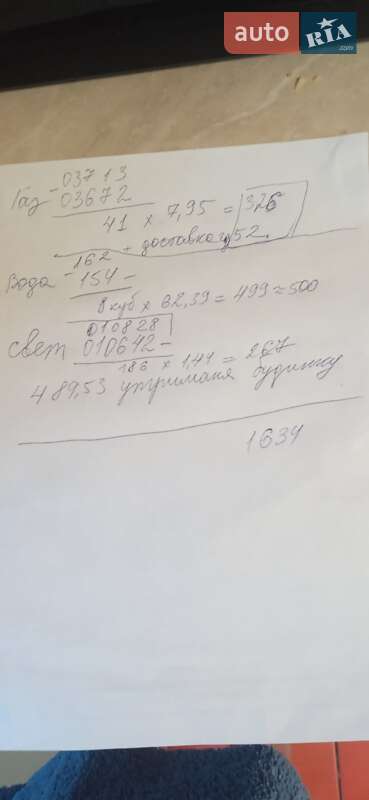 auto RIA.com
03713
Газ - 03672
41 х 7,95 = 326
+ доставка 52.
162
Вода - 154 -
8 куб х 62,39 = 499 ≈ 500
010828
Свет 010642 -
186 х 1,44 = 267
489,53 утриманя будинку
1634